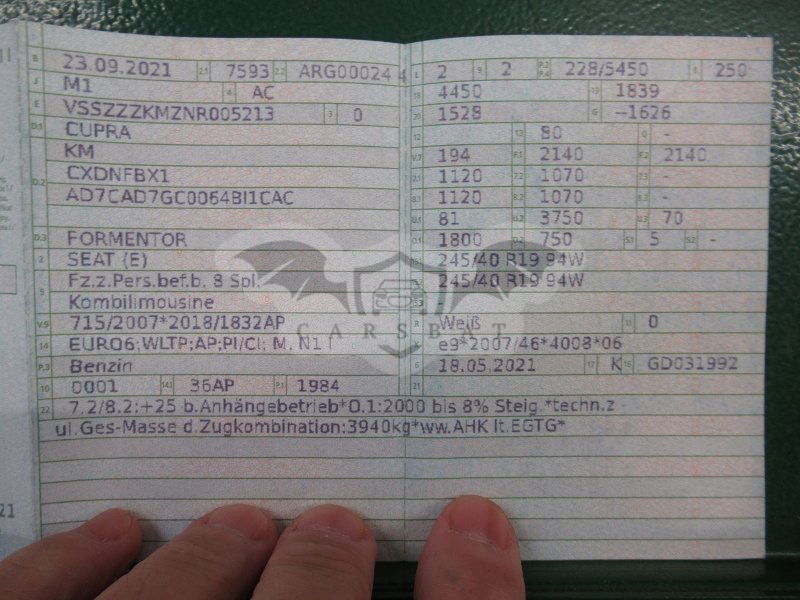 B 23.09.2021 2.1 7593 2.2 ARG00024 4
J M1 4 AC
E VSSZZZKMZNR005213 3 0
D.1 CUPRA
KM
D.2 CXDNFBX1
AD7CAD7GC0064BI1CAC
D.3 FORMENTOR
2 SEAT (E)
5 Fz.z.Pers.bef.b. 8 Spl.
Kombilimousine
V.9 715/2007*2018/1832AP
14 EURO6;WLTP;AP;PI/CI; M, N1 I
P.3 Benzin
10 0001 14.1 36AP P.1 1984
22 7.2/8.2:+25 b.Anhängebetrieb*O.1:2000 bis 8% Steig.*techn.z
ul.Ges-Masse d.Zugkombination:3940kg*ww.AHK lt.EGTG*
L 2 9 2 P.2 P.4 228/5450 T 250
18 4450 19 1839
20 1528 G --1626
12 - 13 80 Q -
V.7 194 F.1 2140 F.2 2140
7.1 1120 7.2 1070 -
8.1 1120 8.2 1070 -
U.1 81 U.2 3750 U.3 70
O.1 1800 O.2 750 S.1 5 S.2 -
245/40 R19 94W
245/40 R19 94W
R Weiß 11 0
K e9*2007/46*4008*06
6 18.05.2021 17 K 16 GD031992
21
CARSBAT
21